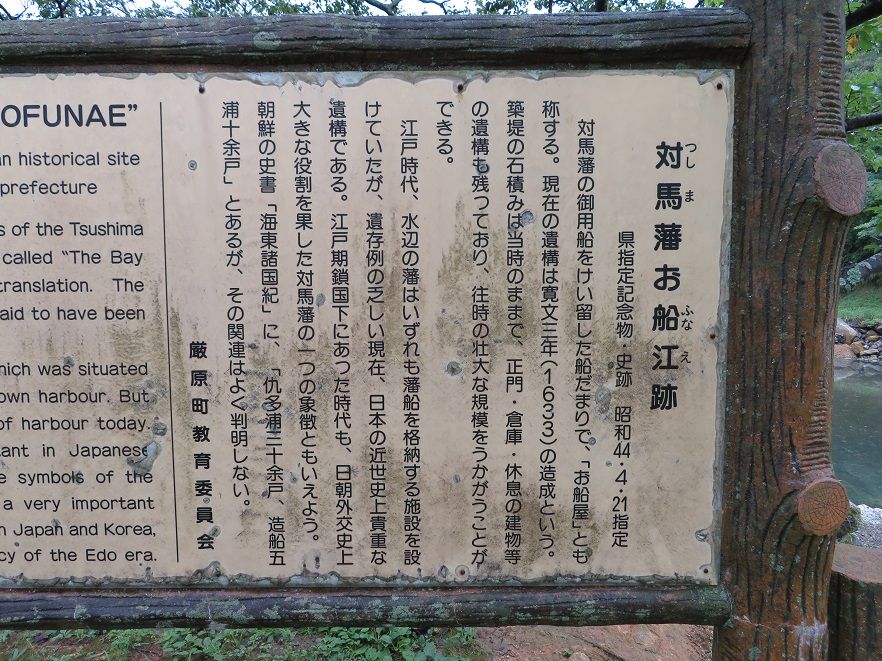 つしま ふなえ
対馬藩お船江跡
県指定記念物・史跡 昭和44・4・21指定
対馬藩の御用船をけい留した船だまりで、「お船屋」とも
称する。現在の遺構は寛文三年(1633)の造成という。
築堤の石積みは当時のままで、正門・倉庫・休息の建物等
の遺構も残っており、往時の壮大な規模をうかがうことが
できる。
江戸時代、水辺の藩はいずれも藩船を格納する施設を設
けていたが、遺存例の乏しい現在、日本の近世史上貴重な
遺構である。江戸期鎖国下にあった時代も、日朝外交史上
大きな役割を果した対馬藩の一つの象徴ともいえよう。
朝鮮の史書「海東諸国紀」に、「仇多浦三十余戸 造船五
浦十余戸」とあるが、その関連はよく判明しない。
厳原町教育委員会
OFUNAE”
n historical site
prefecture
s of the Tsushima
called “The Bay
translation. The
aid to have been
hich was situated
own harbour. But
of harbour today.
tant in Japanese
e symbols of the
a very important
n Japan and Korea,
cy of the Edo era.